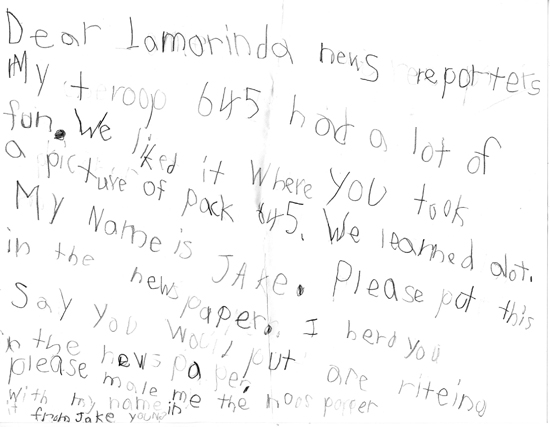 Dear Lamorinda news reporters
My troop 645 had a lot of
fun. We liked it where you took
a picture of pack 645. We learned alot.
My Name is JAke. Please put this
in the newspaper. I herd you
Say you put are riteing
in the news paper
please male me the noos papper
with my name in
it from Jake